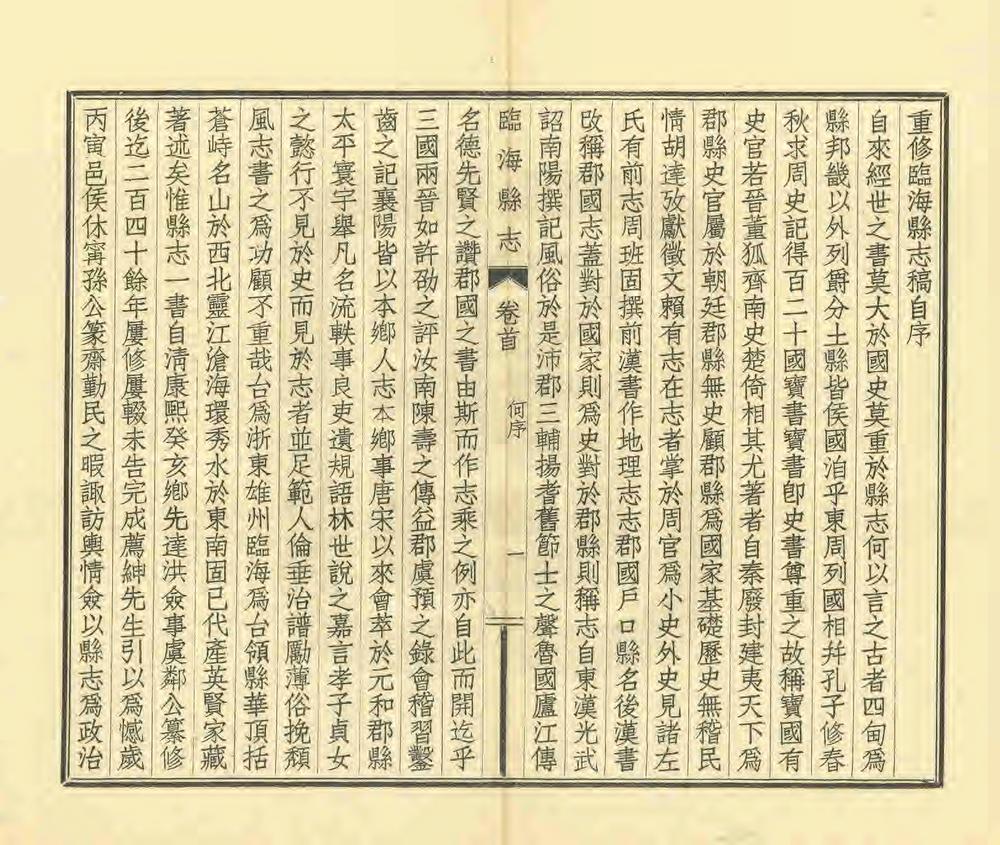 重修臨海縣志稿自序
自來經世之書莫大於國史莫重於縣志何以言之古者四甸爲
縣邦畿以外列爵分土縣皆侯國洎乎東周列國相幷孔子修春
秋求周史記得百二十國寶書寶書卽史書尊重之故稱寶國有
史官若晉董狐齊南史楚倚相其尤著者自秦廢封建夷天下爲
郡縣史官屬於朝廷郡縣無史顧郡縣爲國家基礎歷史無稽民
情胡達攷獻徵文賴有志在志者掌於周官爲小史外史見諸左
氏有前志周班固撰前漢書作地理志志郡國戶口縣名後漢書
改稱郡國志蓋對於國家則爲史對於郡縣則稱志自東漢光武
詔南陽撰記風俗於是沛郡三輔揚耆舊節士之聲魯國廬江傳
臨海縣志 卷首 何序 一
名德先賢之讚郡國之書由斯而作志乘之例亦自此而開迄乎
三國兩晉如許劭之評汝南陳壽之傳益郡虞預之錄會稽習鑿
齒之記襄陽皆以本鄉人志本鄉事唐宋以來會萃於元和郡縣
太平寰宇舉凡名流軼事良吏遺規語林世說之嘉言孝子貞女
之懿行不見於史而見於志者並足範人倫垂治譜勵薄俗挽頹
風志書之爲功顧不重哉台爲浙東雄州臨海爲台領縣華頂括
蒼峙名山於西北靈江滄海環秀水於東南固已代產英賢家藏
著述矣惟縣志一書自淸康熙癸亥鄉先達洪僉事虞鄰公纂修
後迄二百四十餘年屢修屢輟未告完成薦紳先生引以爲憾歲
丙寅邑侯休甯孫公篆齋勤民之暇諏訪輿情僉以縣志爲政治